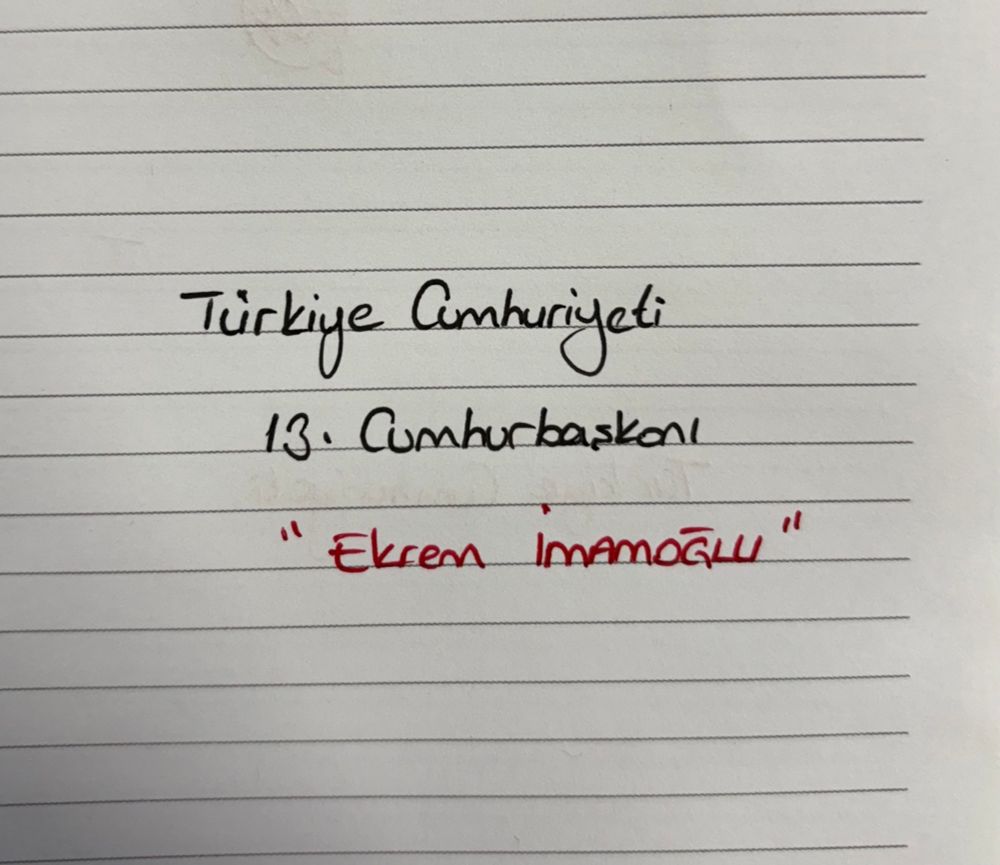 Türkiye Cumhuriyeti
13. Cumhurbaşkanı
" Ekrem İmamoğlu "